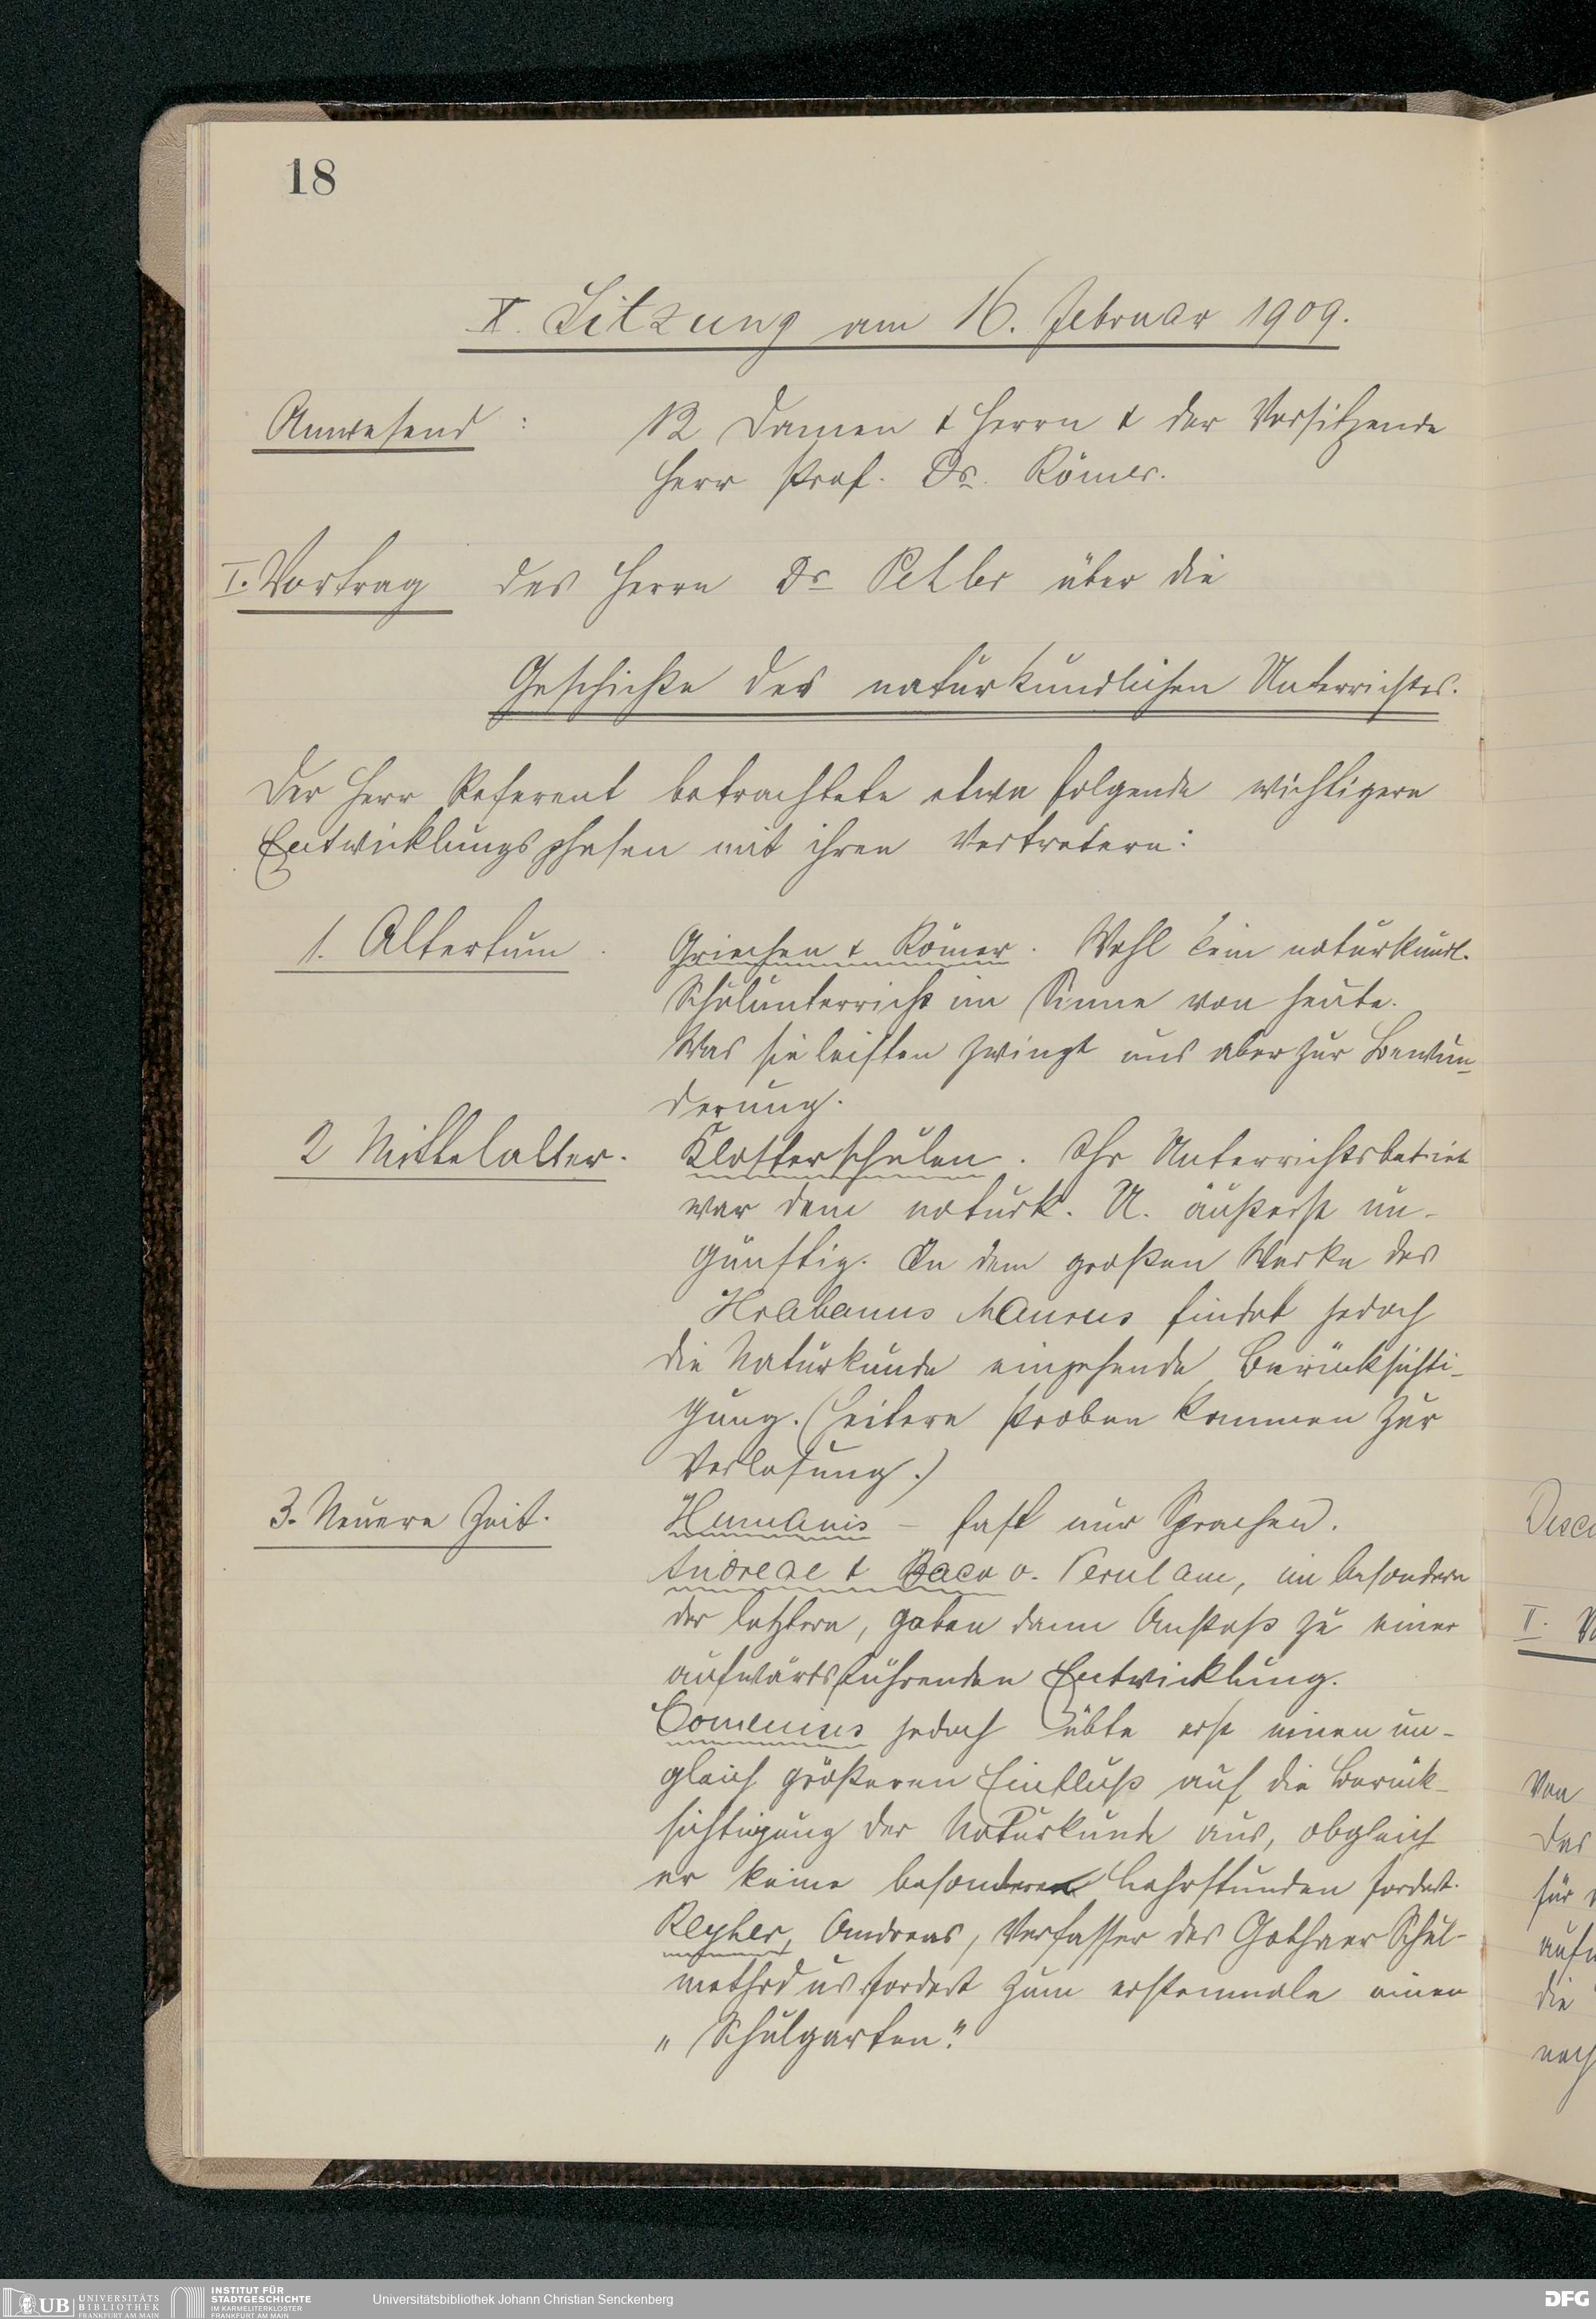 18
X. Sitzung am 16. Februar 1909.
Anwesend : 12 Damen & Herrn & der Vorsitzende
Herr Prof. Dr. Römer.
I. Vortrag des Herrn Dr über die
Geschichte des naturkundlichen Unterrichtes.
Der Herr Referent betrachtete etwa folgende wichtigere
Entwicklungsphasen mit ihren Vertretern:
1. Altertum. Griechen & Römer. Wohl kein naturkundl.
Schulunterricht im Sinne von heute.
Was sie leisten zwingt uns aber zur Bewun-
derung.
2 Mittelalter. Klosterschulen. Ihr Unterrichtsbetrieb
war dem naturk. U. äußerst un-
günstig. In dem großen Werke des
Hrabanus Maurus findet jedoch
die Naturkunde eingehende Berücksichti-
gung. (Heitere Proben kommen zur
Verlesung.)
3. Neuere Zeit. Humanis – fast nur Sprachen.
Andreae & Baco v. Verulam, im besondern
der letztere, gaben dann Anstoß zu einer
aufwärtsführenden Entwicklung.
Comenius jedoch übte erst einen un-
gleich größeren Einfluß auf die Berück-
sichtigung der Naturkunde aus, obgleich
er keine besonderen Lehrstunden fordert.
Reyher, Andreas, Verfasser des Gothaer Schul-
methodus fordert zum erstenmale einen
„Schulgarten."
Von
Das
für
die
noch
II.
UB UNIVERSITÄTS
BIBLIOTHEK
FRANKFURT AM MAIN
INSTITUT FÜR
STADTGESCHICHTE
IM KARMELITERKLOSTER
FRANKFURT AM MAIN
Universitätsbibliothek Johann Christian Senckenberg
DFG